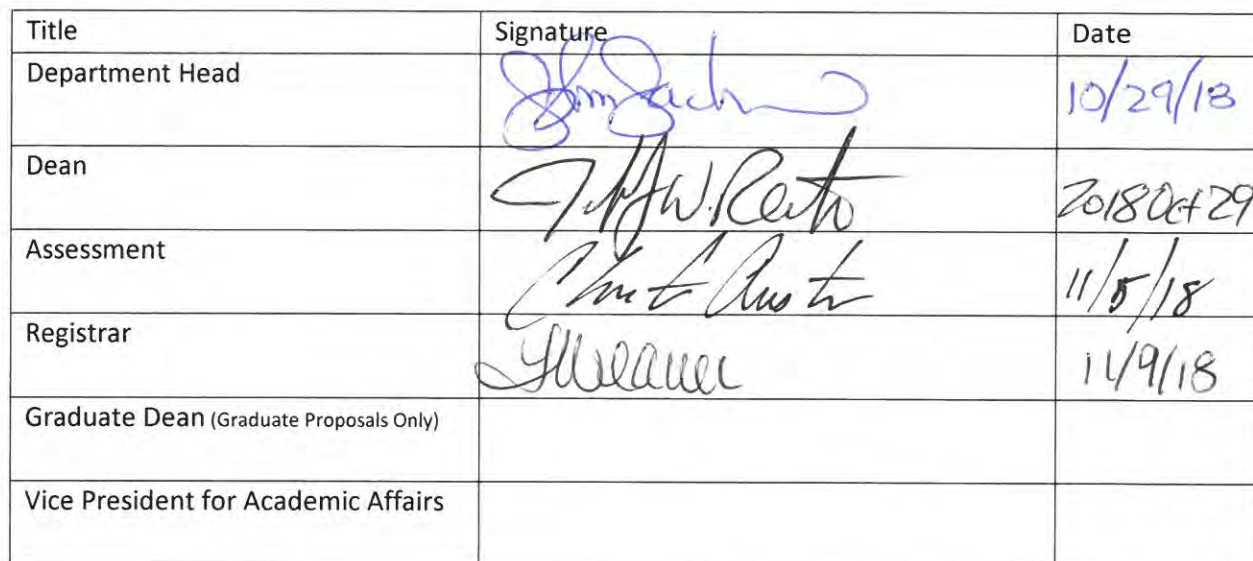 Title Signature Date
Department Head 10/29/18
Dean W. 2018 Oct 29
Assessment 11/5/18
Registrar 11/9/18
Graduate Dean (Graduate Proposals Only)
Vice President for Academic Affairs